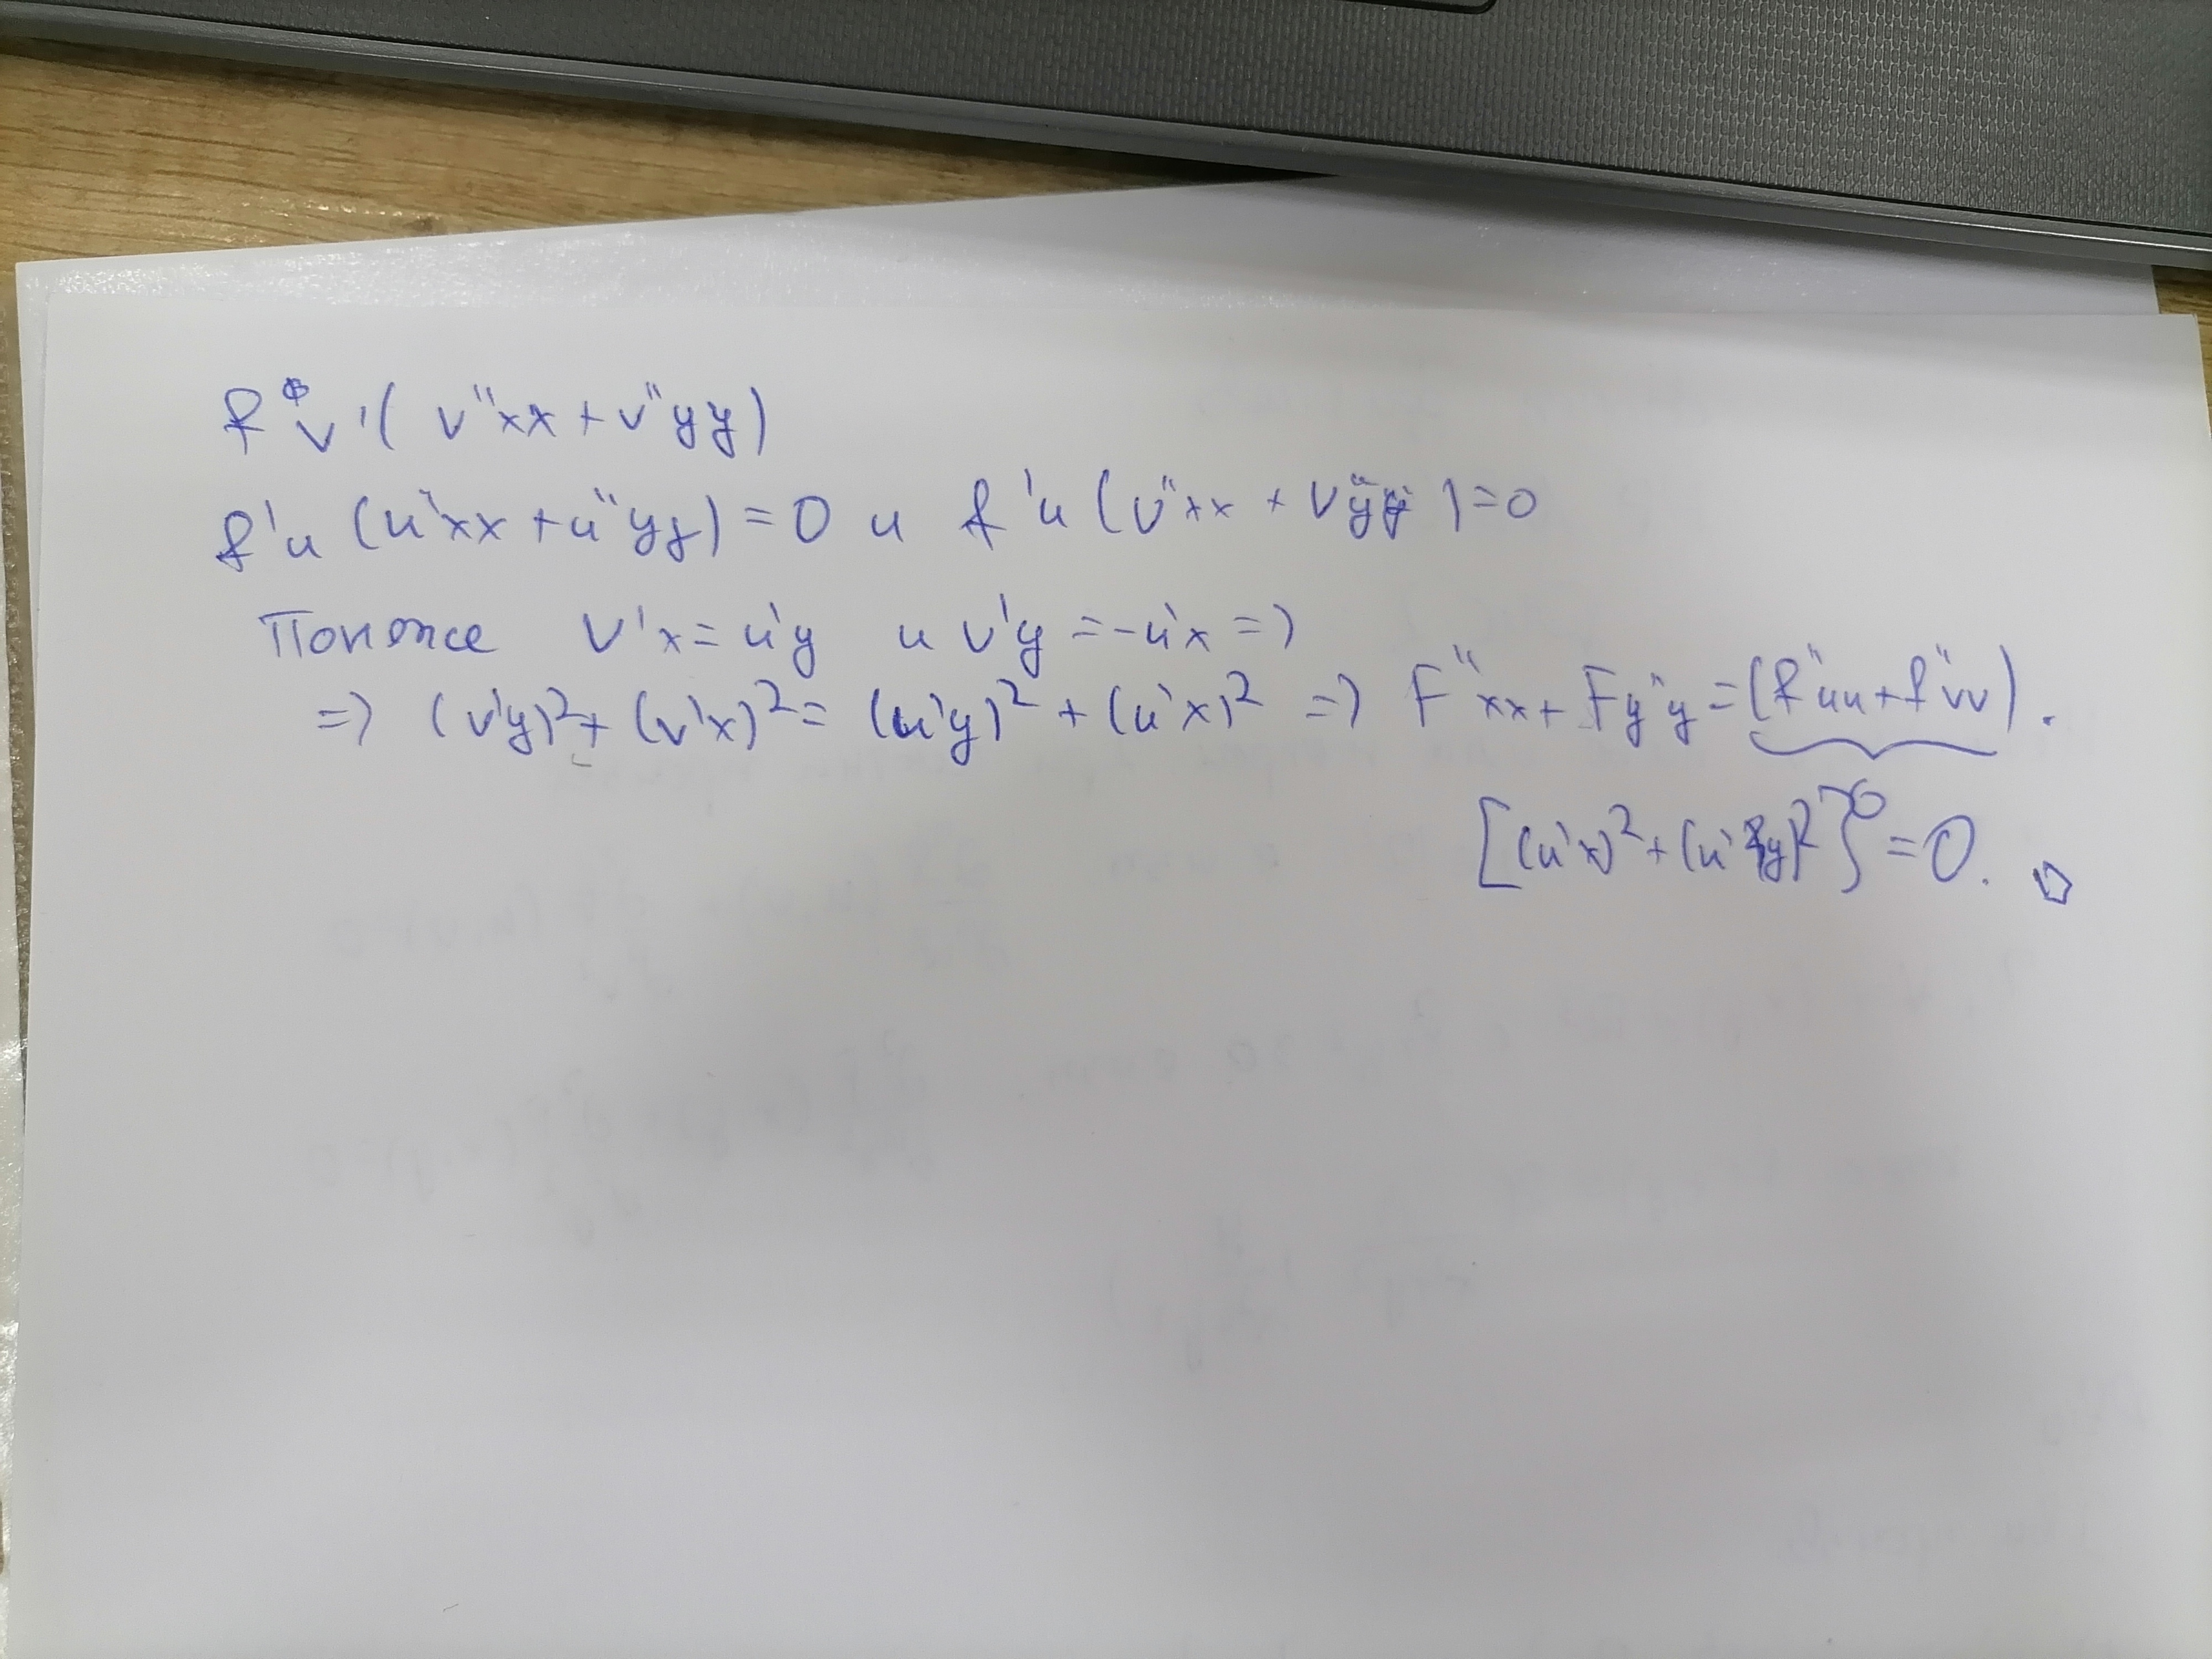 f'v (v''xx + v''yy)
f'u (u''xx + u''yy) = 0 и f'u (v''xx + v''yy) = 0
v'x = u'y и v'y = -u'x =>
=> (v'y)² + (v'x)² = (u'y)² + (u'x)² => F''xx + Fy''y = (f''uu + f''vv) .
[(u'x)² + (u'y)²] = 0.